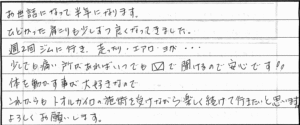 お世話になって半年になります。
ひどかった肩こりも少しずつ良くなってきました。
週2回ジムに行き、走ったり・エアロ・ヨガ・・・
少しでも痛い所があればいつでも✉で聞けるので安心です!!
体を動かす事が大好きなので
これからもトオルカイロの施術を受けながら楽しく続けて行きたいと思います。
よろしくお願いします。